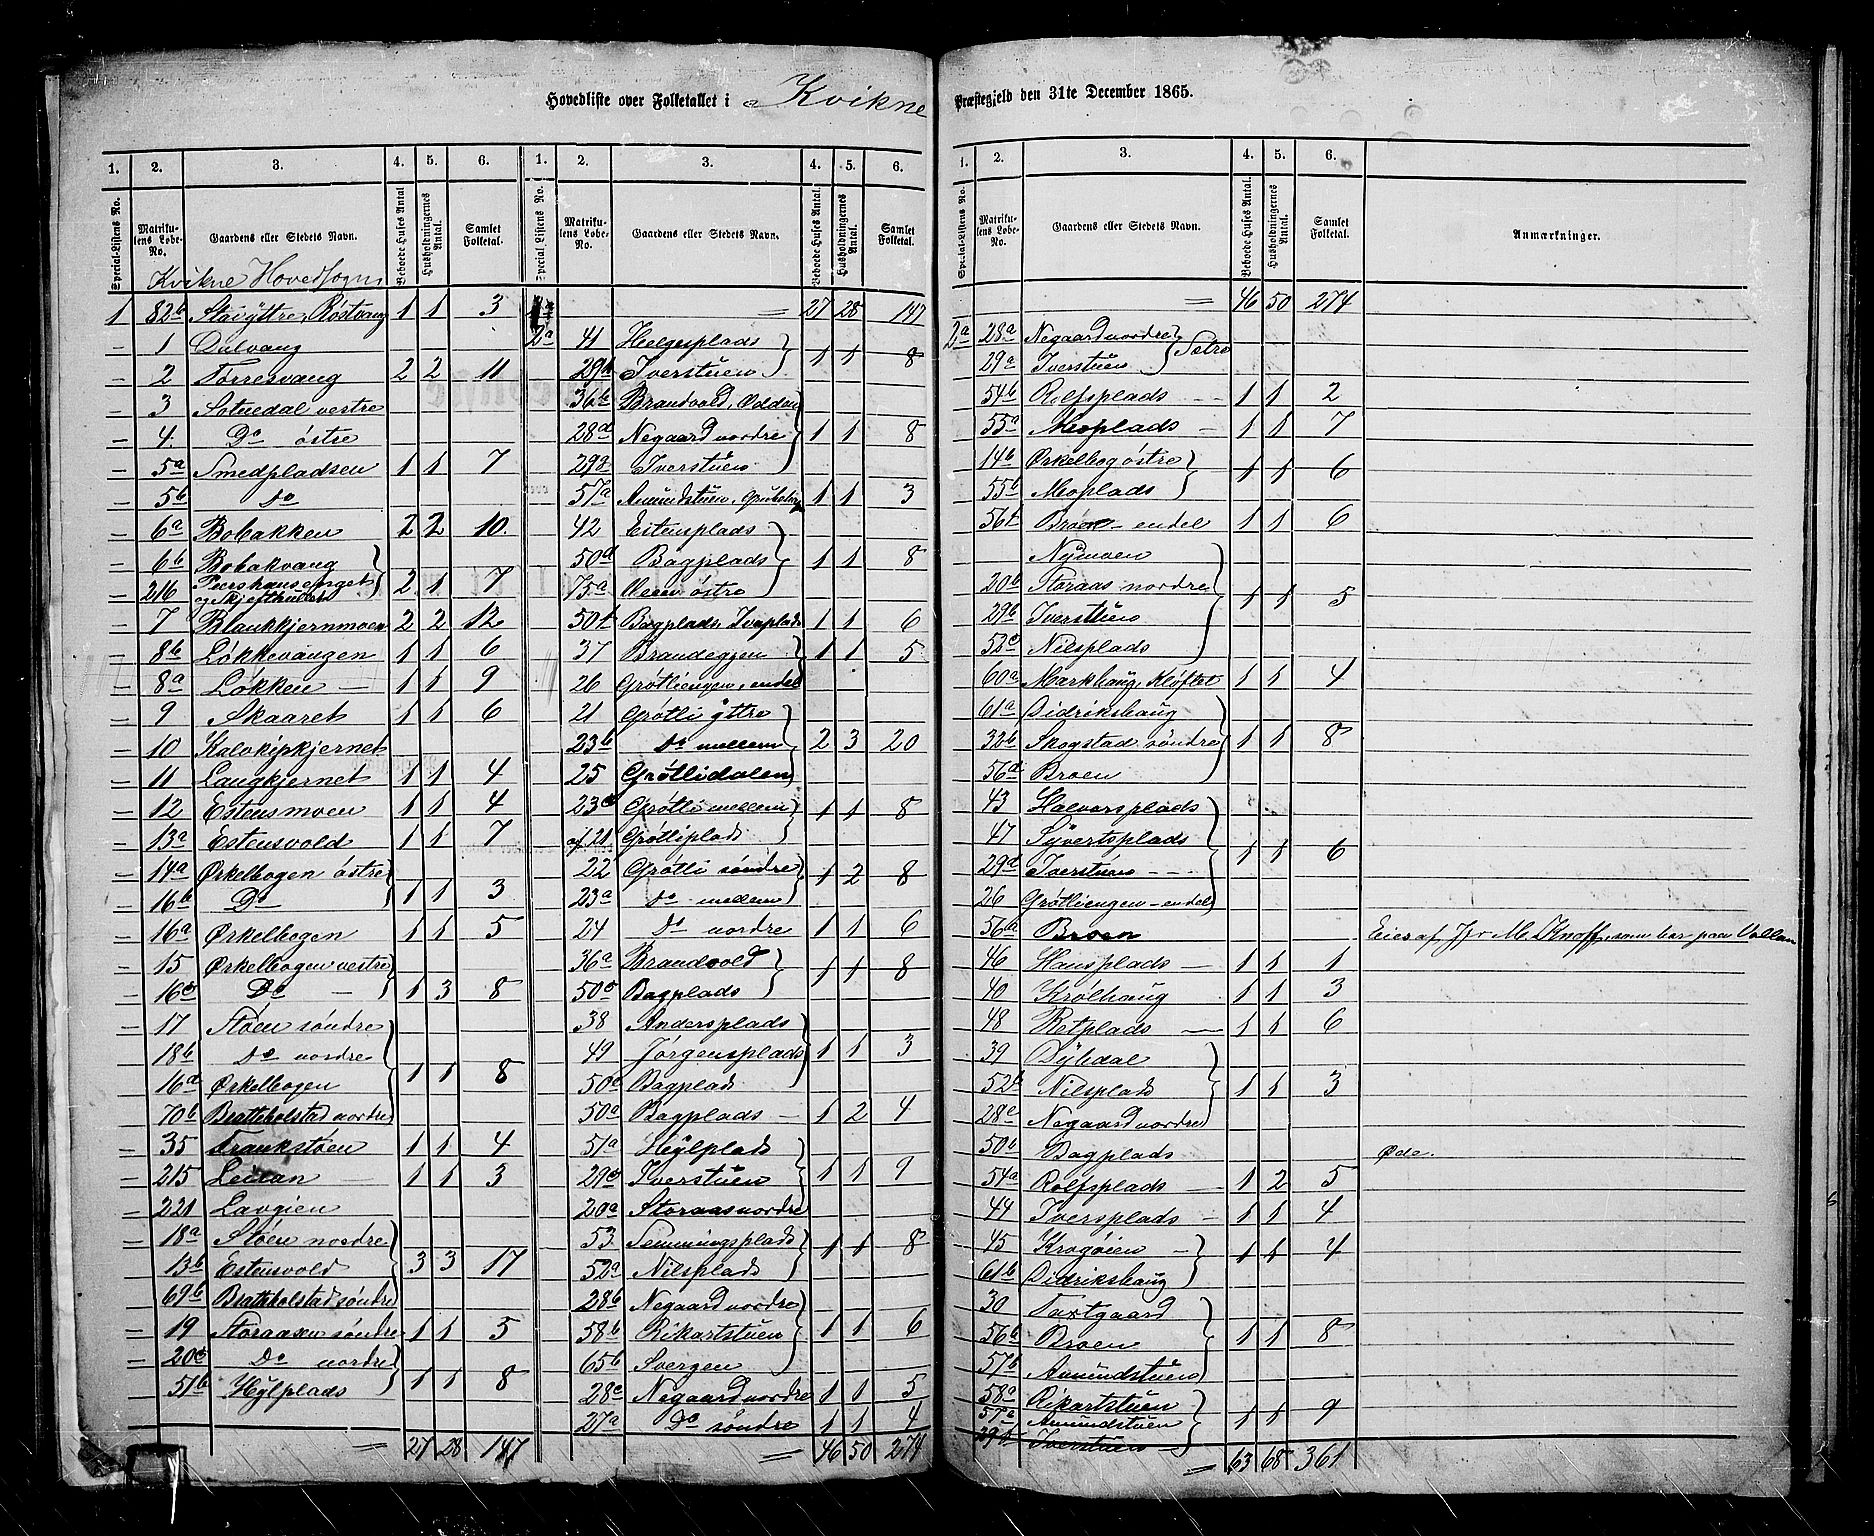 Hovedliste over Folketallet i Kvikne Præstegjeld den 31te December 1865.
1. 2. 3. 4. 5. 6. 1. 2. 3. 4. 5. 6.
Special-Listens No. Matrikulens Løbe-No. Gaardens eller Stedets Navn. Beboede Huses Antal Husholdningernes Antal. Samlet Folketal. Special-Listens No. Matrikulens Løbe-No. Gaardens eller Stedets Navn. Beboede Huses Antal. Husholdningernes Antal. Samlet Folketal.
Kvikne Hovedsogn
1 82b Støi yttre, Røstvang 1 1 3
— 1 Dalvang
— 2 Torresvang 2 2 11
— 3 Stuedal vestre
— 4 Do østre
— 5a Smedpladsen 1 1 7
— 5b Do
— 6a Bobakken 2 2 10
— 6b Bobakvang
— 216 Peershansenget og 2 1 7
— 7 Blankkjernmoen 2 2 12
— 8b Løkkevangen 1 1 6
— 8a Løkken — 1 1 9
— 9 Skaaret 1 1 6
— 10 Kalvkipkjernet
— 11 Langkjernet 1 1 4
— 12 Estensmoen 1 1 4
— 13a Estensvold 1 1 7
— 14a Ørkelbogen østre
— 16b Do 1 1 3
— 16a Ørkelbogen 1 1 5
— 15 Ørkelbogen vestre
— 16c Do — 1 3 8
— 17 Støen søndre
— 18b Do nordre
— 16d Ørkelbogen 1 1 8
— 70b Brathholstad nordre
— 35 Frankstøen 1 1 4
— 215 Leiran — 1 1 3
— 221 Lavgien
— 18a Støen nordre
— 13b Estensvold 3 3 17
— 69b Brathholstad søndre
— 19 Storaasen søndre 1 1 5
— 20c Do nordre
— 51b Hylplads 1 1 8
= 27 28 147
= 27 28 147
2a 41 Helgesplads
29 Iverstuen 1 1 8
36b Brandvold, Odden
28d Negaard nordre 1 1 8
29 Iverstuen
57a Amundstuen, 1 1 3
42 Estensplads
50d Bagplads 1 1 8
75a Oien østre
50f Bagplads, Iverplads 1 1 6
37 Brandeggen 1 1 5
26 Grøtliengen, endel
21 Grøtli yttre
23b Do mellem 2 3 20
25 Grøtlidalen
23c Grøtli mellem 1 1 8
af 21 Grøtliplads
22 Grøtli søndre 1 2 8
23a Do mellem
24 Do nordre 1 1 6
36a Brandvold 1 1 8
50c Bagplads
38 Andersplads
49 Jørgensplads 1 1 3
50e Bagplads
50a Bagplads — 1 2 4
51a Hylplads
29c Iverstuen 1 1 9
20a Storaas nordre
53 Temmingsplads 1 1 8
52a Nilsplads
28b Negaard nordre
58b Rikartstuen 1 1 6
65b Svergen
28c Negaard nordre 1 1 5
27a Do søndre 1 1 4
= 46 50 274
1. 2. 3. 4. 5. 6.
Special-Listens No. Matrikulens Løbe-No. Gaardens eller Stedets Navn. Beboede Huses Antal. Husholdningernes Antal. Samlet Folketal. Anmærkninger.
= 46 50 274
2a 28a Negaard nordre
29a Iverstuen Setre
54b Rolfsplads — 1 1 2
55a Moplads — 1 1 7
14b Ørkelbog østre 1 1 6
55b Moplads
56 Broen — endel 1 1 6
Nymoen
20b Storaas nordre 1 1 5
29b Iverstuen
52c Nilsplads
60a Markhaug, Kløftet 1 1 4
61a Didrikshaug
32b Skogstad søndre 1 1 8
56d Broen
43 Halvorsplads
47 Syvertsplads
29d Iverstuen - - - 1 1 6
26 Grøtliengen — endel
56a Broen Eies af M. Knoff, som bor paa Vollan
46 Hansplads — 1 1 1
40 Krølhaug 1 1 3
48 Retplads — 1 1 6
39 Dyhdal
52b Nilsplads 1 1 3
28e Negaard nordre
50b Bagplads Øde.
54a Rolfsplads — 1 2 5
44 Iversplads — 1 1 4
45 Krogøien — 1 1 4
61b Didrikshaug
30 Toxtgaard
56b Broen 1 1 8
57b Amundstuen
58a Rikartstuen
57a Amundstuen 1 1 9
29 Iverstuen
= 63 68 361